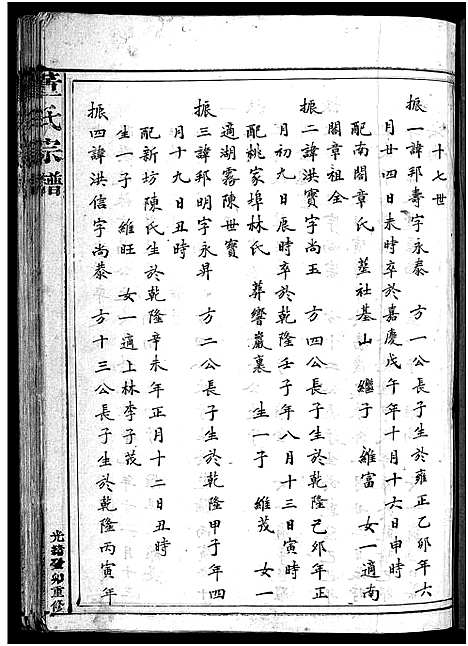 十七世
振一諱邦壽字永泰 方一公長子生於雍正乙卯年六
月廿四日未時卒於嘉慶戊午年十月十六日申時
配南閣章氏 塟社基山 繼子 維富 女一適南
閣章祖全
振二諱洪寶字尚玉 方四公長子生於乾隆己卯年正
月初九日辰時卒於乾隆壬子年八月十三日寅時
配姚家埠林氏 葬響巖裏 生一子 維茂 女一
適湖霧陳世寶
振三諱邦明字永昇 方二公長子生於乾隆甲子年四
月十九日丑時
配新坊陳氏生於乾隆辛未年正月十二日丑時
生一子 維旺 女一適上林李子茂
振四諱洪信字尚泰 方十三公長子生於乾隆丙寅年
董氏宗譜
光緒癸卯重修